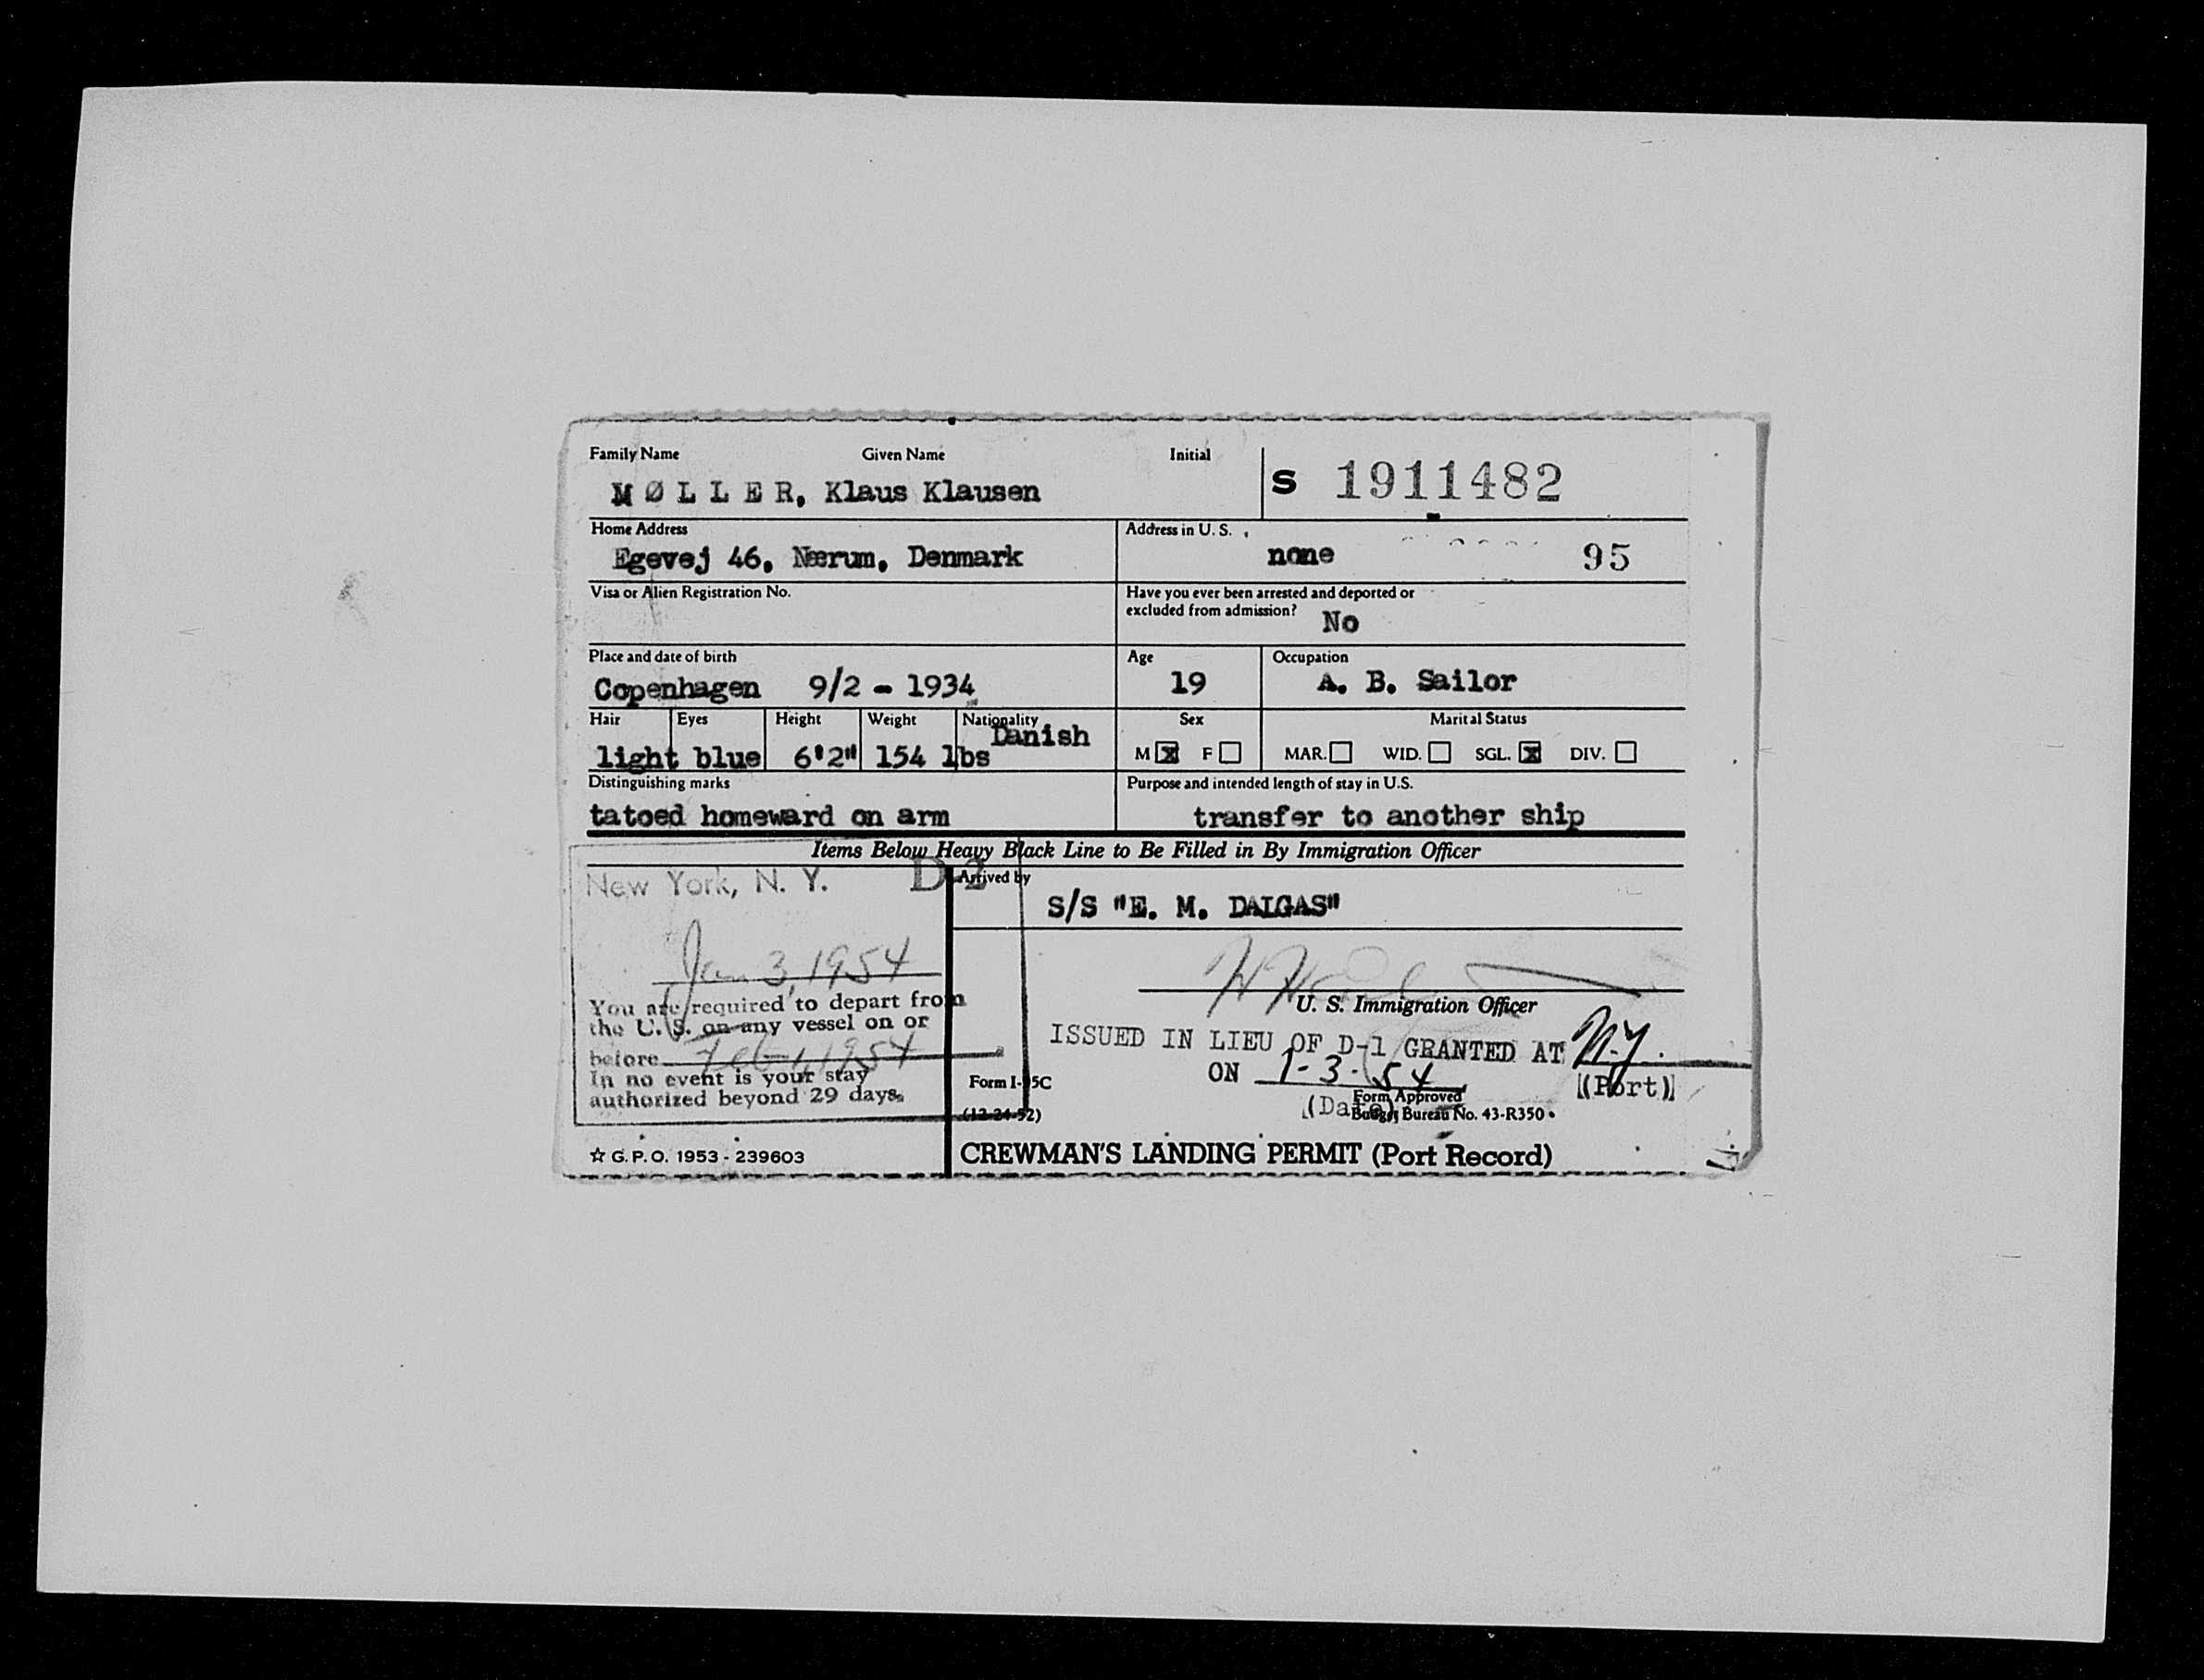 Family Name Given Name Initial
MØLLER, Klaus Klausen S 1911482
Home Address Address in U. S.
Egevej 46, Nærum, Denmark none 95
Visa or Alien Registration No. Have you ever been arrested and deported or
excluded from admission? No
Place and date of birth Age Occupation
Copenhagen 9/2 - 1934 19 A. B. Sailor
Hair Eyes Height Weight Nationality Sex Marital Status
Danish
light blue 6'2" 154 lbs M ☒ F ☐ MAR. ☐ WID. ☐ SGL. ☒ DIV. ☐
Distinguishing marks Purpose and intended length of stay in U.S.
tatoed homeward on arm transfer to another ship
Items Below Heavy Black Line to Be Filled in By Immigration Officer
New York, N. Y. D-2 Arrived by
S/S "E. M. DALGAS"
Jan 3, 1954
You are required to depart from
the U. S. on any vessel on or
before Feb 1, 1954
In no event is your stay
authorized beyond 29 days.
U. S. Immigration Officer
ISSUED IN LIEU OF D-1 GRANTED AT N.Y.
ON 1-3-54 (Port)
(Date)
Form I-95C Form Approved
(12-24-52) Budget Bureau No. 43-R350.
☆ G. P. O. 1953 - 239603 CREWMAN'S LANDING PERMIT (Port Record)